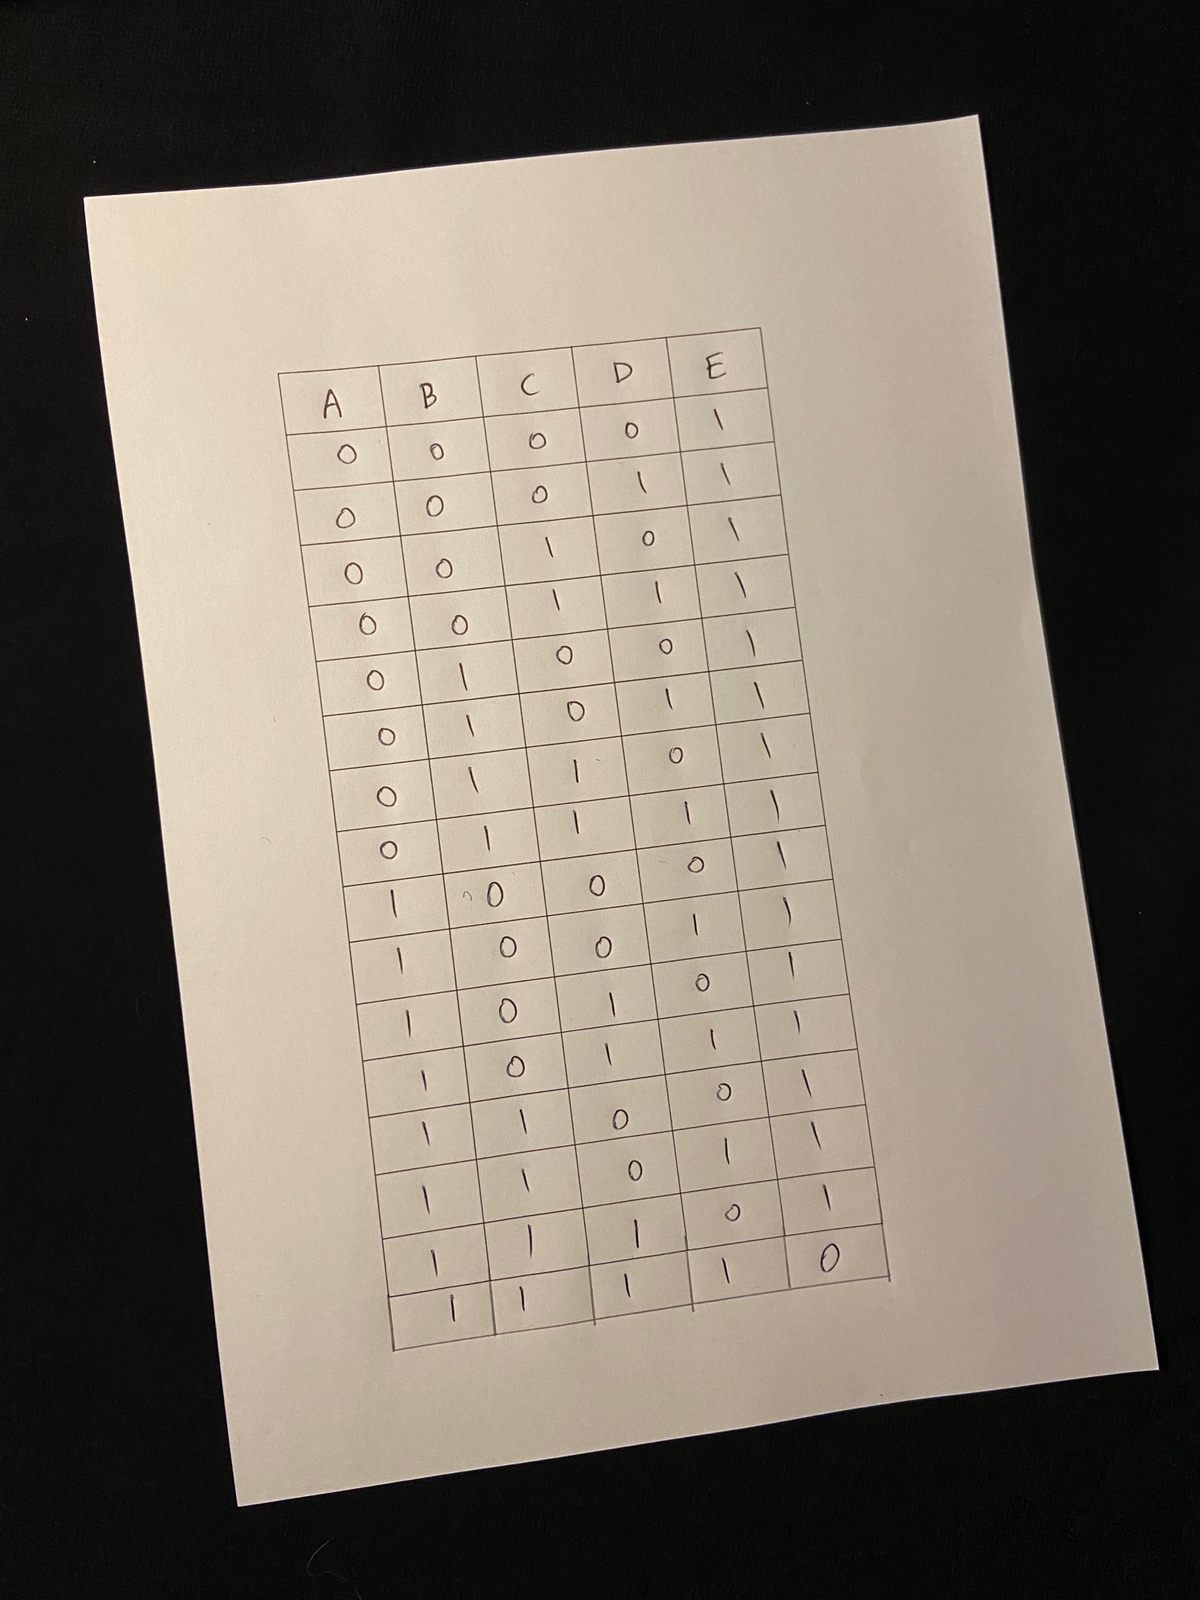 A B C D E
0 0 0 0 1
0 0 0 1 1
0 0 1 0 1
0 0 1 1 1
0 1 0 0 1
0 1 0 1 1
0 1 1 0 1
0 1 1 1 1
1 0 0 0 1
1 0 0 1 1
1 0 1 0 1
1 0 1 1 1
1 1 0 0 1
1 1 0 1 1
1 1 1 0 1
1 1 1 1 0